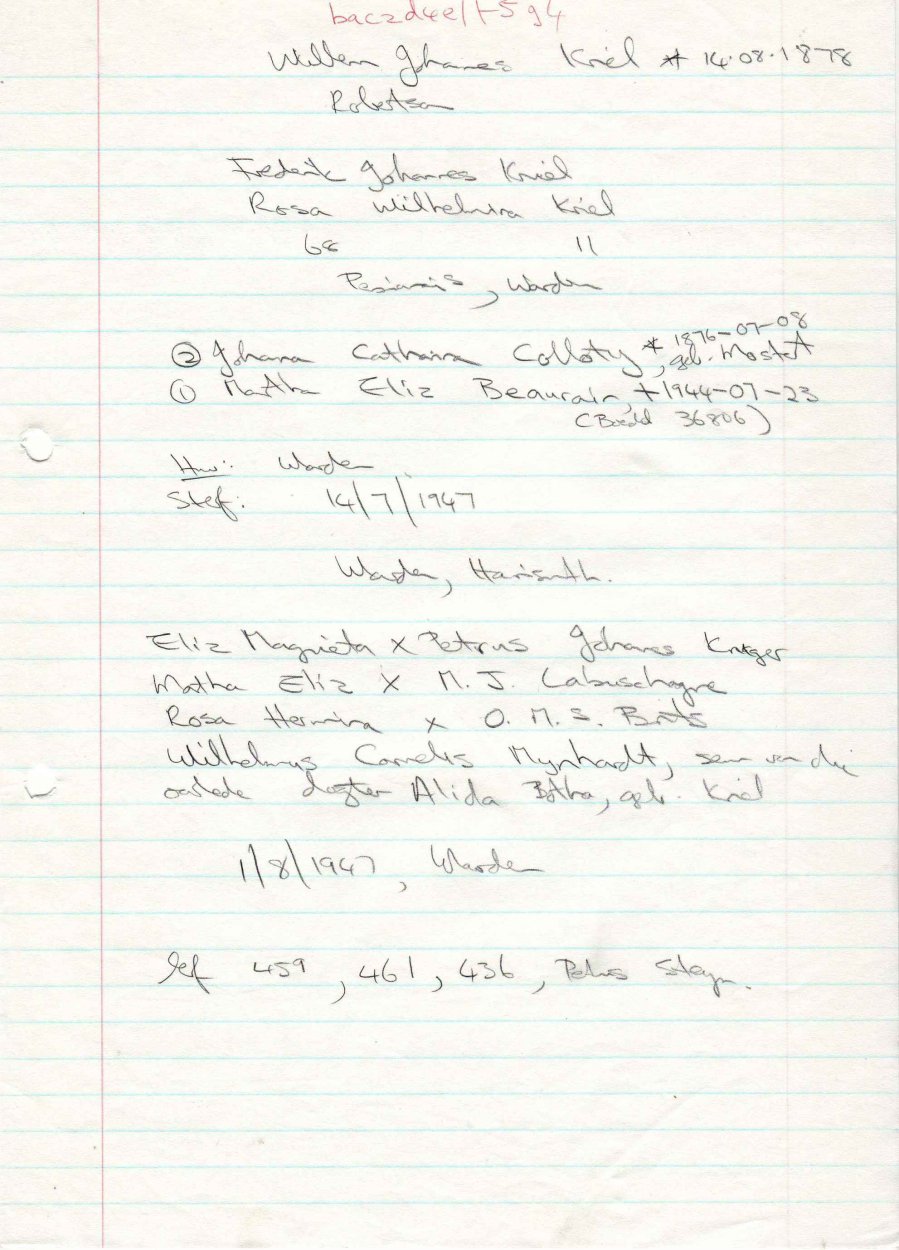 Willem Johannes Kriel * 14.08.1878
Robertson
Frederik Johannes Kriel
Rosa Wilhelmina Kriel
68 11
Warden
② Johanna Catharina Colloty * 1876-07-08
, geb. Mostert
① Martha Eliz Beaurain, + 1944-07-23
(Boedel 36806)
Huw: Warden
Sterf: 14/7/1947
Warden, Harrismith.
Eliz Magrieta x Petrus Johannes Kruger
Martha Eliz x M. J. Labuschagne
Rosa Hermina x O. M. S. Brits
Wilhelmus Cornelis Mynhardt, seun van die
oorlede dogter Alida Botha, geb. Kriel
1/8/1947, Warden
459, 461, 436, Petrus Steyn.